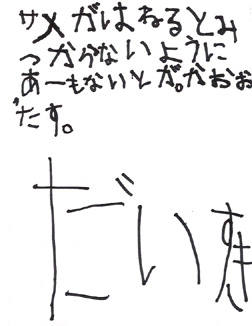 サメがはねるとみ
つからないように
あーもないとが。かおお
だす。
だいき